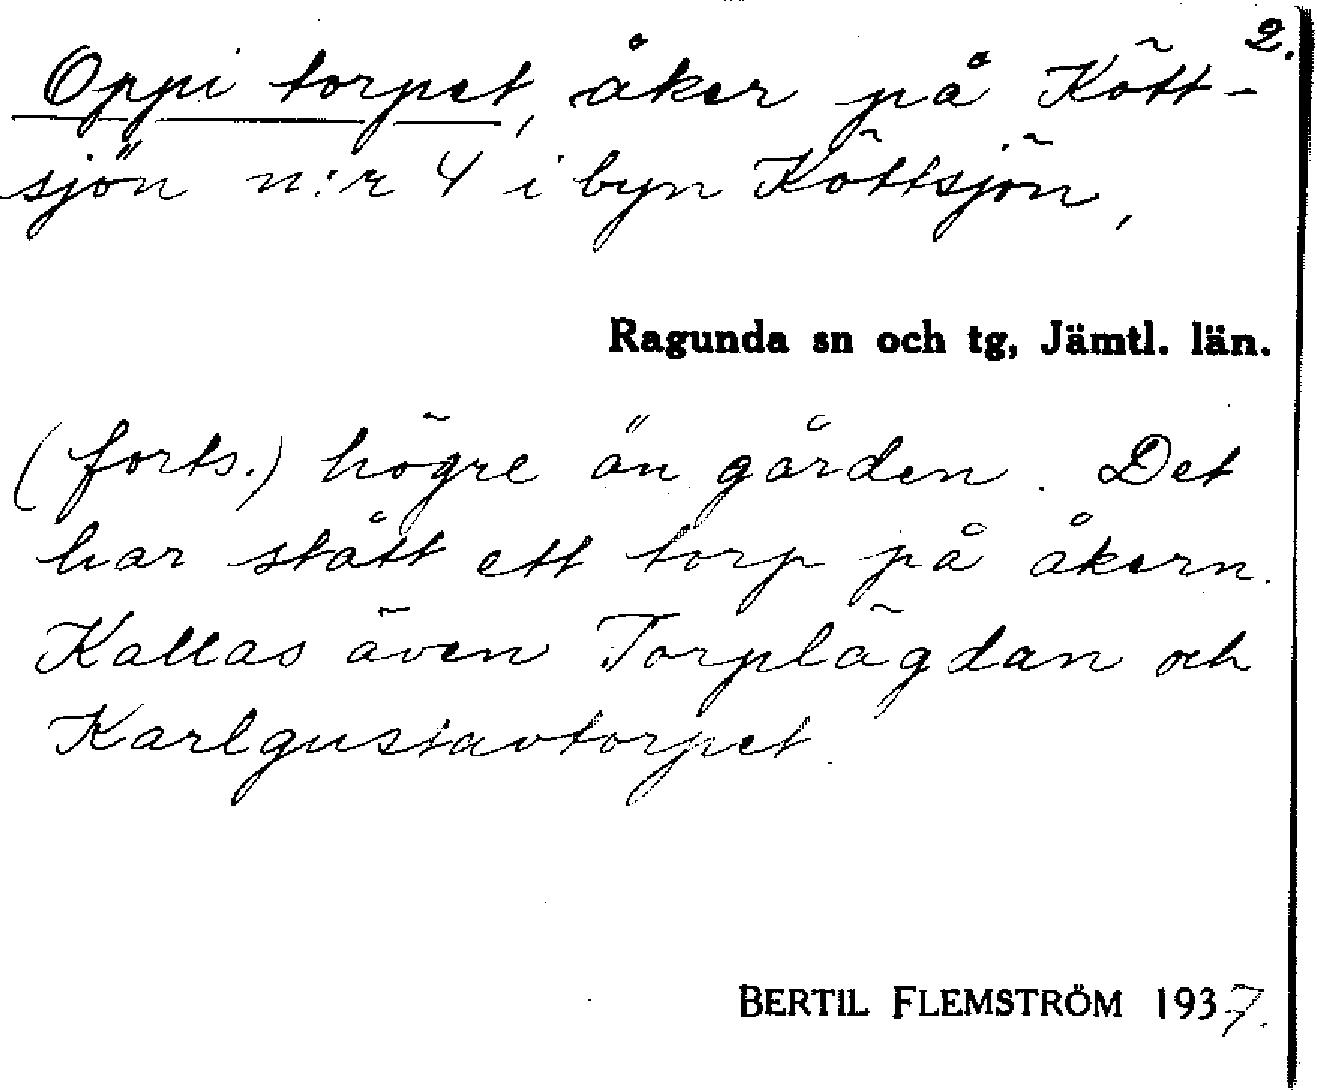 2.
Oppi torpet, åker på Kött-
sjön n:r 4 i byn Köttsjön,
Ragunda sn och tg, Jämtl. län.
(forts.) högre än gården. Det
har stått ett torp på åkern.
Kallas även Torplägdan och
Karlgustavtorpet.
BERTIL FLEMSTRÖM 1937.